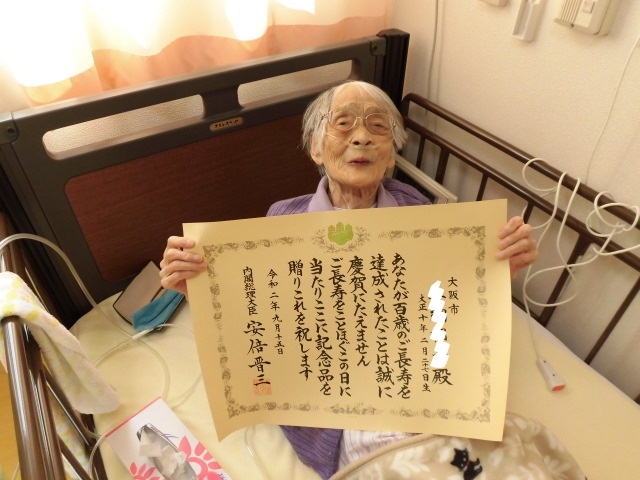 大阪市
殿
大正十年二月二十六日生
あなたが百歳のご長寿を
達成されたことは誠に
慶賀にたえません
ご長寿をことほぐこの日に
当たりここに記念品を
贈りこれを祝します
令和二年九月十五日
内閣総理大臣 安倍晋三